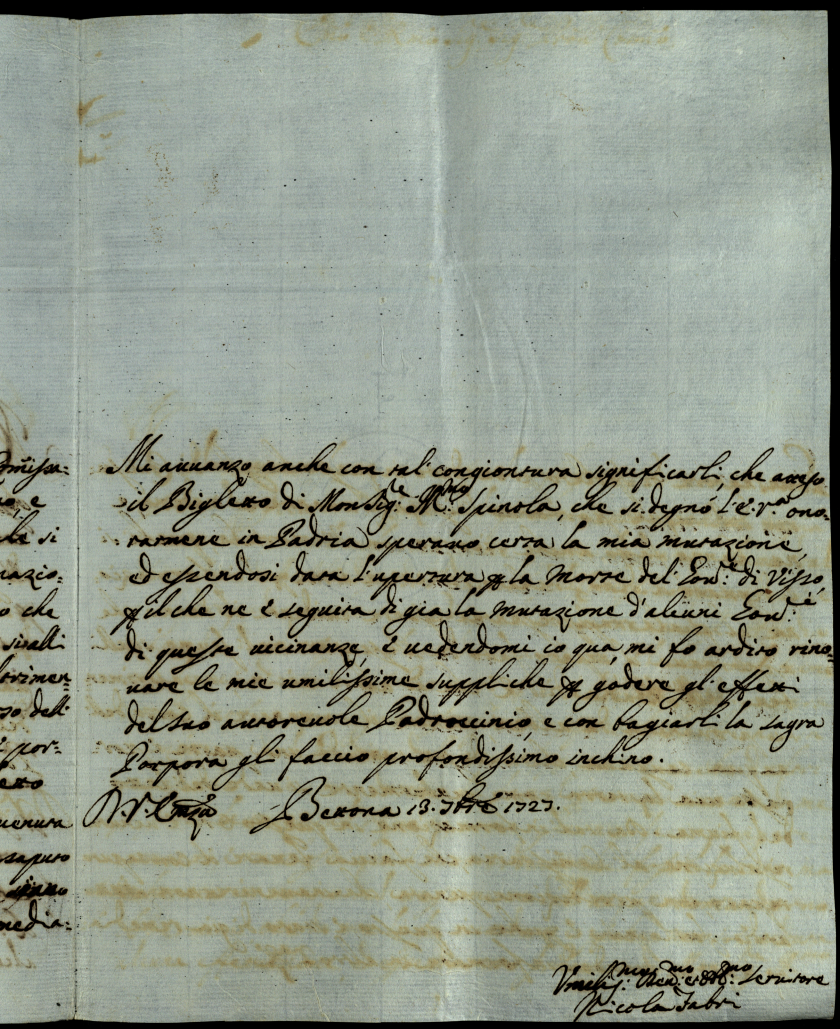 Mi auuanzo anche con tal congiontura significarli, che atteso
il Biglietto di Monsig.re M.ro Spinola, che si degnò l'E.V.ra ono-
rarmene in Padria sperauo certa la mia mutazione,
ed essendosi data l'apertura p la morte del Gov.re di Visso,
p il che ne è seguita di già la mutazione d'alcuni Gov.ri
di queste uicinanze, e uedendomi io quà, mi fo ardito rino-
uare le mie umilissime suppliche p godere gl'effetti
del suo autoreuole Padrocinio, e con bagiarli la sagra
Porpora gli faccio profondissimo inchino.
D.V. Emza Bettona 13. 7bre 1727.
Umiliss.mo Deu.mo et Obb.mo Seruitore
Nicola Fabri
omissa:
o, e
le si
nazio:
o che
sitalli
trimen:
so dell'
por:
etto
uenuta
saputo
media: